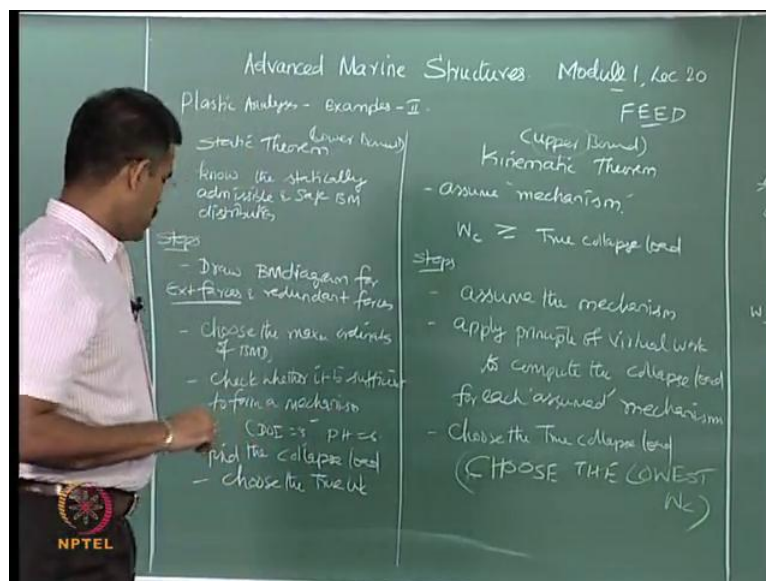 Advanced Marine Structures. Module 1, Lec 20
Plastic Analyses - Examples - II.
FEED
Static Theorem (Lower Bound)
know the statically
admissible & Safe BM
distribution
Steps
- Draw BM diagram for
Ext forces & redundant forces
- Choose the maxm ordinates
of BMD,
- check whether it is sufficient
to form a mechanism
(DOI = 3 PH =
find the collapse load
- choose the True Wc
(Upper Bound)
Kinematic Theorem
- assume "mechanism"
Wc ≥ True collapse load
steps
- assume the mechanism
- apply principle of virtual work
to compute the collapse load
for each "assumed" mechanism
- Choose the True collapse load
(CHOOSE THE LOWEST
Wc)
NPTEL